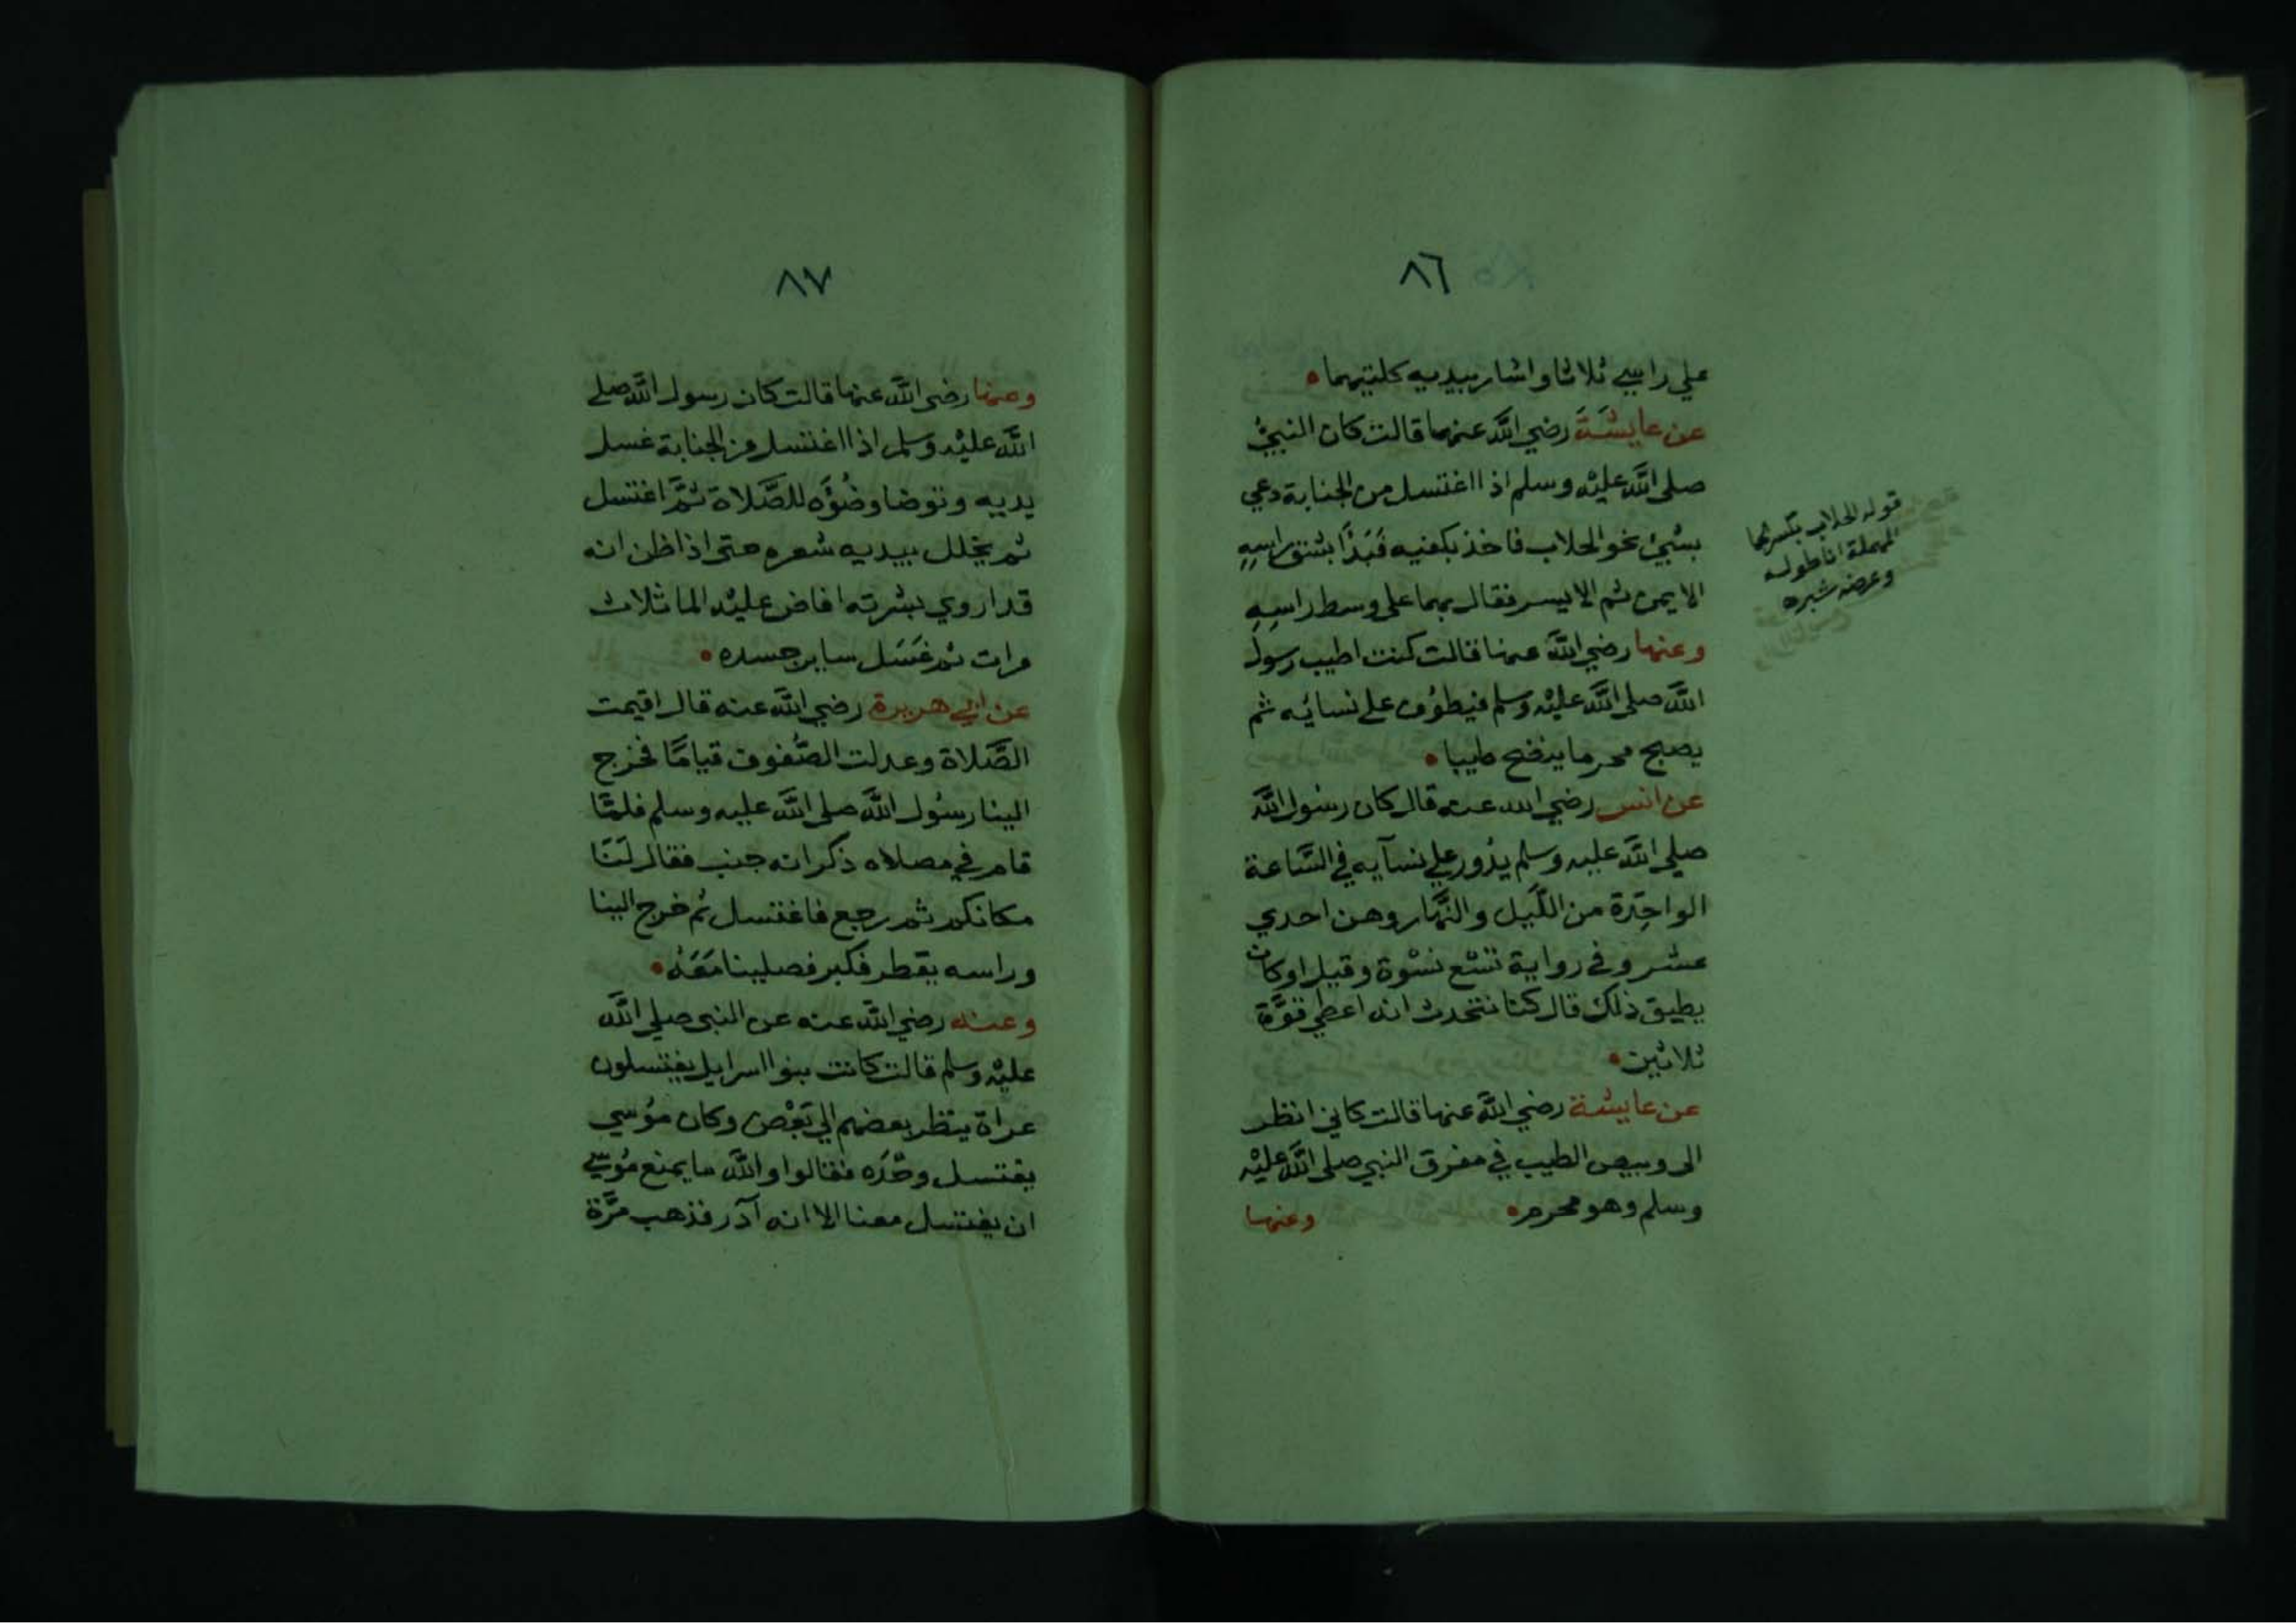 ٨٦
علي راسي ثلاثا واشار بيديه كلتيهما
عن عايشَةَ رضي اللَّه عنها قالت كان النبيُّ
صلى اللَّه عليْه وسلم اذا اغتسل من الجنابة دعي
بشيئ نحو الحلاب فاخذ بكفيه فَبَدَأَ بشق راسِهِ
الايمن ثم الايسر فقال بهما على وسط راسِهِ
وعنها رضي اللَّه عنها قالت كنت اطيب رسول
اللَّه صلى اللَّه عليْه وسلم فيطوُف على نسائِه ثم
يصبح محرما ينضح طيبا
عن انس رضي الله عنه قال كان رسُول اللَّه
صلى اللَّه عليه وسلم يدُور علي نسآيه في السَّاعة
الواحِدَة من اللَّيل والنَّهار وهن احدي
عشر وفي رواية تسْع نسْوة وقيل اوكان
يطيق ذلك قال كنا نتحدث انه اعطي قوَّة
ثلاثين
عن عايشة رضي اللَّه عنها قالت كاني انظر
الى وبيص الطيب في مفرق النبي صلى اللَّه عليْه
وسلم وهو محرم
وعنها
قوله الحلاب بكسر الحا
المهملة انا طوله
وعرضه شبره
٨٧
وعنها رضي اللَّه عنها قالت كان رسول اللَّه صلى
اللَّه عليْه وسلم اذا اغتسل من الجنابة غسل
يديه وتوضا وضُؤَه للصَّلاة ثمَّ اغتسل
ثم يخلل بيديه شعره حتى اذا ظن انه
قد اروي بشرته افاض عليْه الما ثلاث
مرات ثم غسَل ساير جسده
عن ابي هريرة رضي اللَّه عنه قال اقيمت
الصَّلاة وعدلت الصُّفوف قيامًا فخرج
الينا رسُول اللَّه صلى اللَّه عليه وسلم فلمَّا
قام في مصلاه ذكر انه جنب فقال لَنَا
مكانكم ثم رجع فاغتسل ثم خرج الينا
وراسه يقطر فكبر فصلينا مَعَهُ
وعنه رضي اللَّه عنه عن النبى صلى اللَّه
عليْه وسلم قالت كانت بنوا اسرايل يغتسلون
عراة ينظر بعضهم الي بَعْض وكان موُسي
يغتسل وحْدَه فقالوا واللَّه ما يمنع مُوسي
ان يغتسل معنا الا انه آدر فذهب مَرَّة